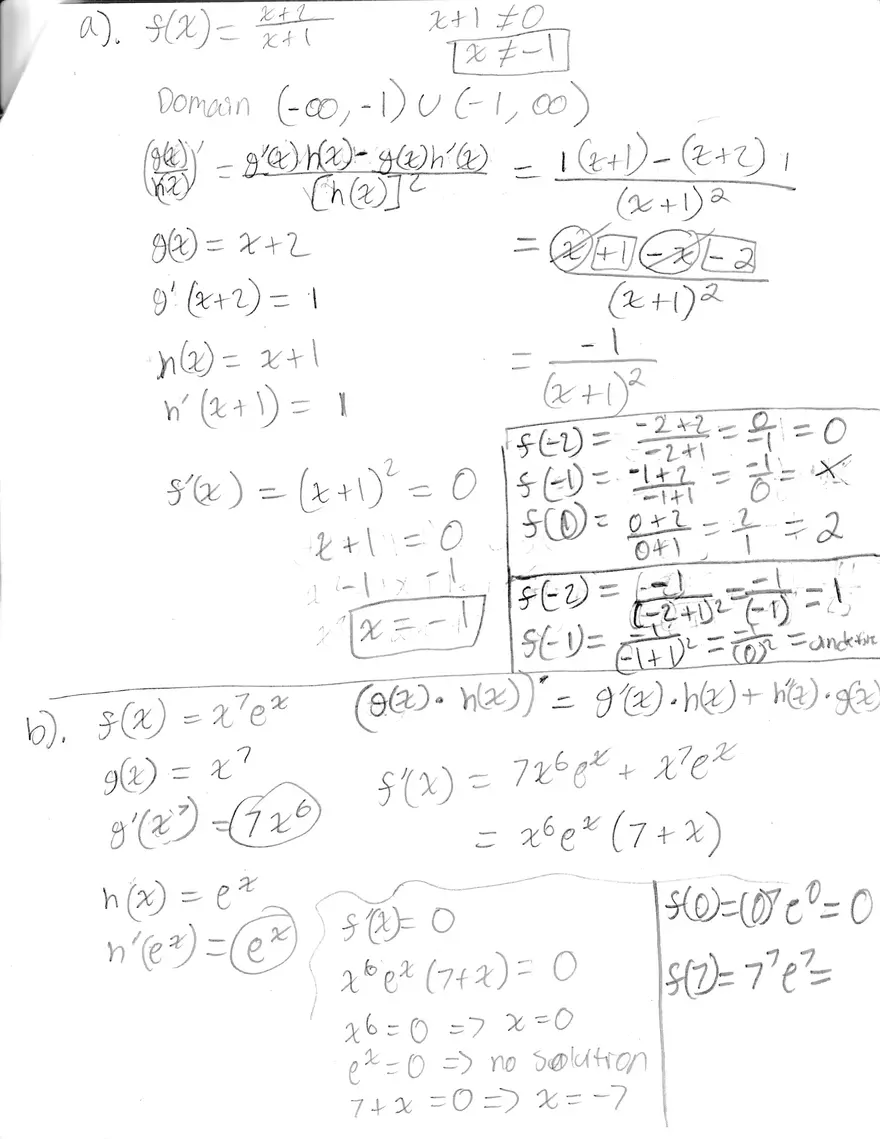 a). f(x) = (x+2)/(x+1) x+1 ≠ 0
x ≠ -1
Domain (-∞, -1) ∪ (-1, ∞)
(g(x)/h(x))' = (g'(x) h(x) - g(x) h'(x))/[h(x)]² = (1(x+1) - (x+2) 1)/(x+1)²
g(x) = x+2 = (x +1 -x -2)/(x+1)²
g'(x+2) = 1
h(x) = x+1 = -1/(x+1)²
h'(x+1) = 1
f'(x) = (x+1)² = 0
x+1 = 0
-1 -1
x = -1
f(-2) = (-2+2)/(-2+1) = 0/-1 = 0
f(-1) = (-1+2)/(-1+1) = -1/0 = X
f(0) = (0+2)/(0+1) = 2/1 = 2
f(-2) = -1/(-2+1)² = -1/(-1) = 1
f(-1) = -1/(-1+1)² = -1/(0)² =
b). f(x) = x⁷eˣ (g(x) · h(x))' = g'(x) · h(x) + h'(x) · g(x)
g(x) = x⁷ f'(x) = 7x⁶eˣ + x⁷eˣ
g'(x⁷) = 7x⁶ = x⁶eˣ (7+x)
h(x) = eˣ
h'(eˣ) = eˣ
f'(x) = 0
x⁶eˣ (7+x) = 0
x⁶ = 0 => x = 0
eˣ = 0 => no solution
7+x = 0 => x = -7
f(0) = (0)⁷e⁰ = 0
f(7) = 7⁷e⁷ =